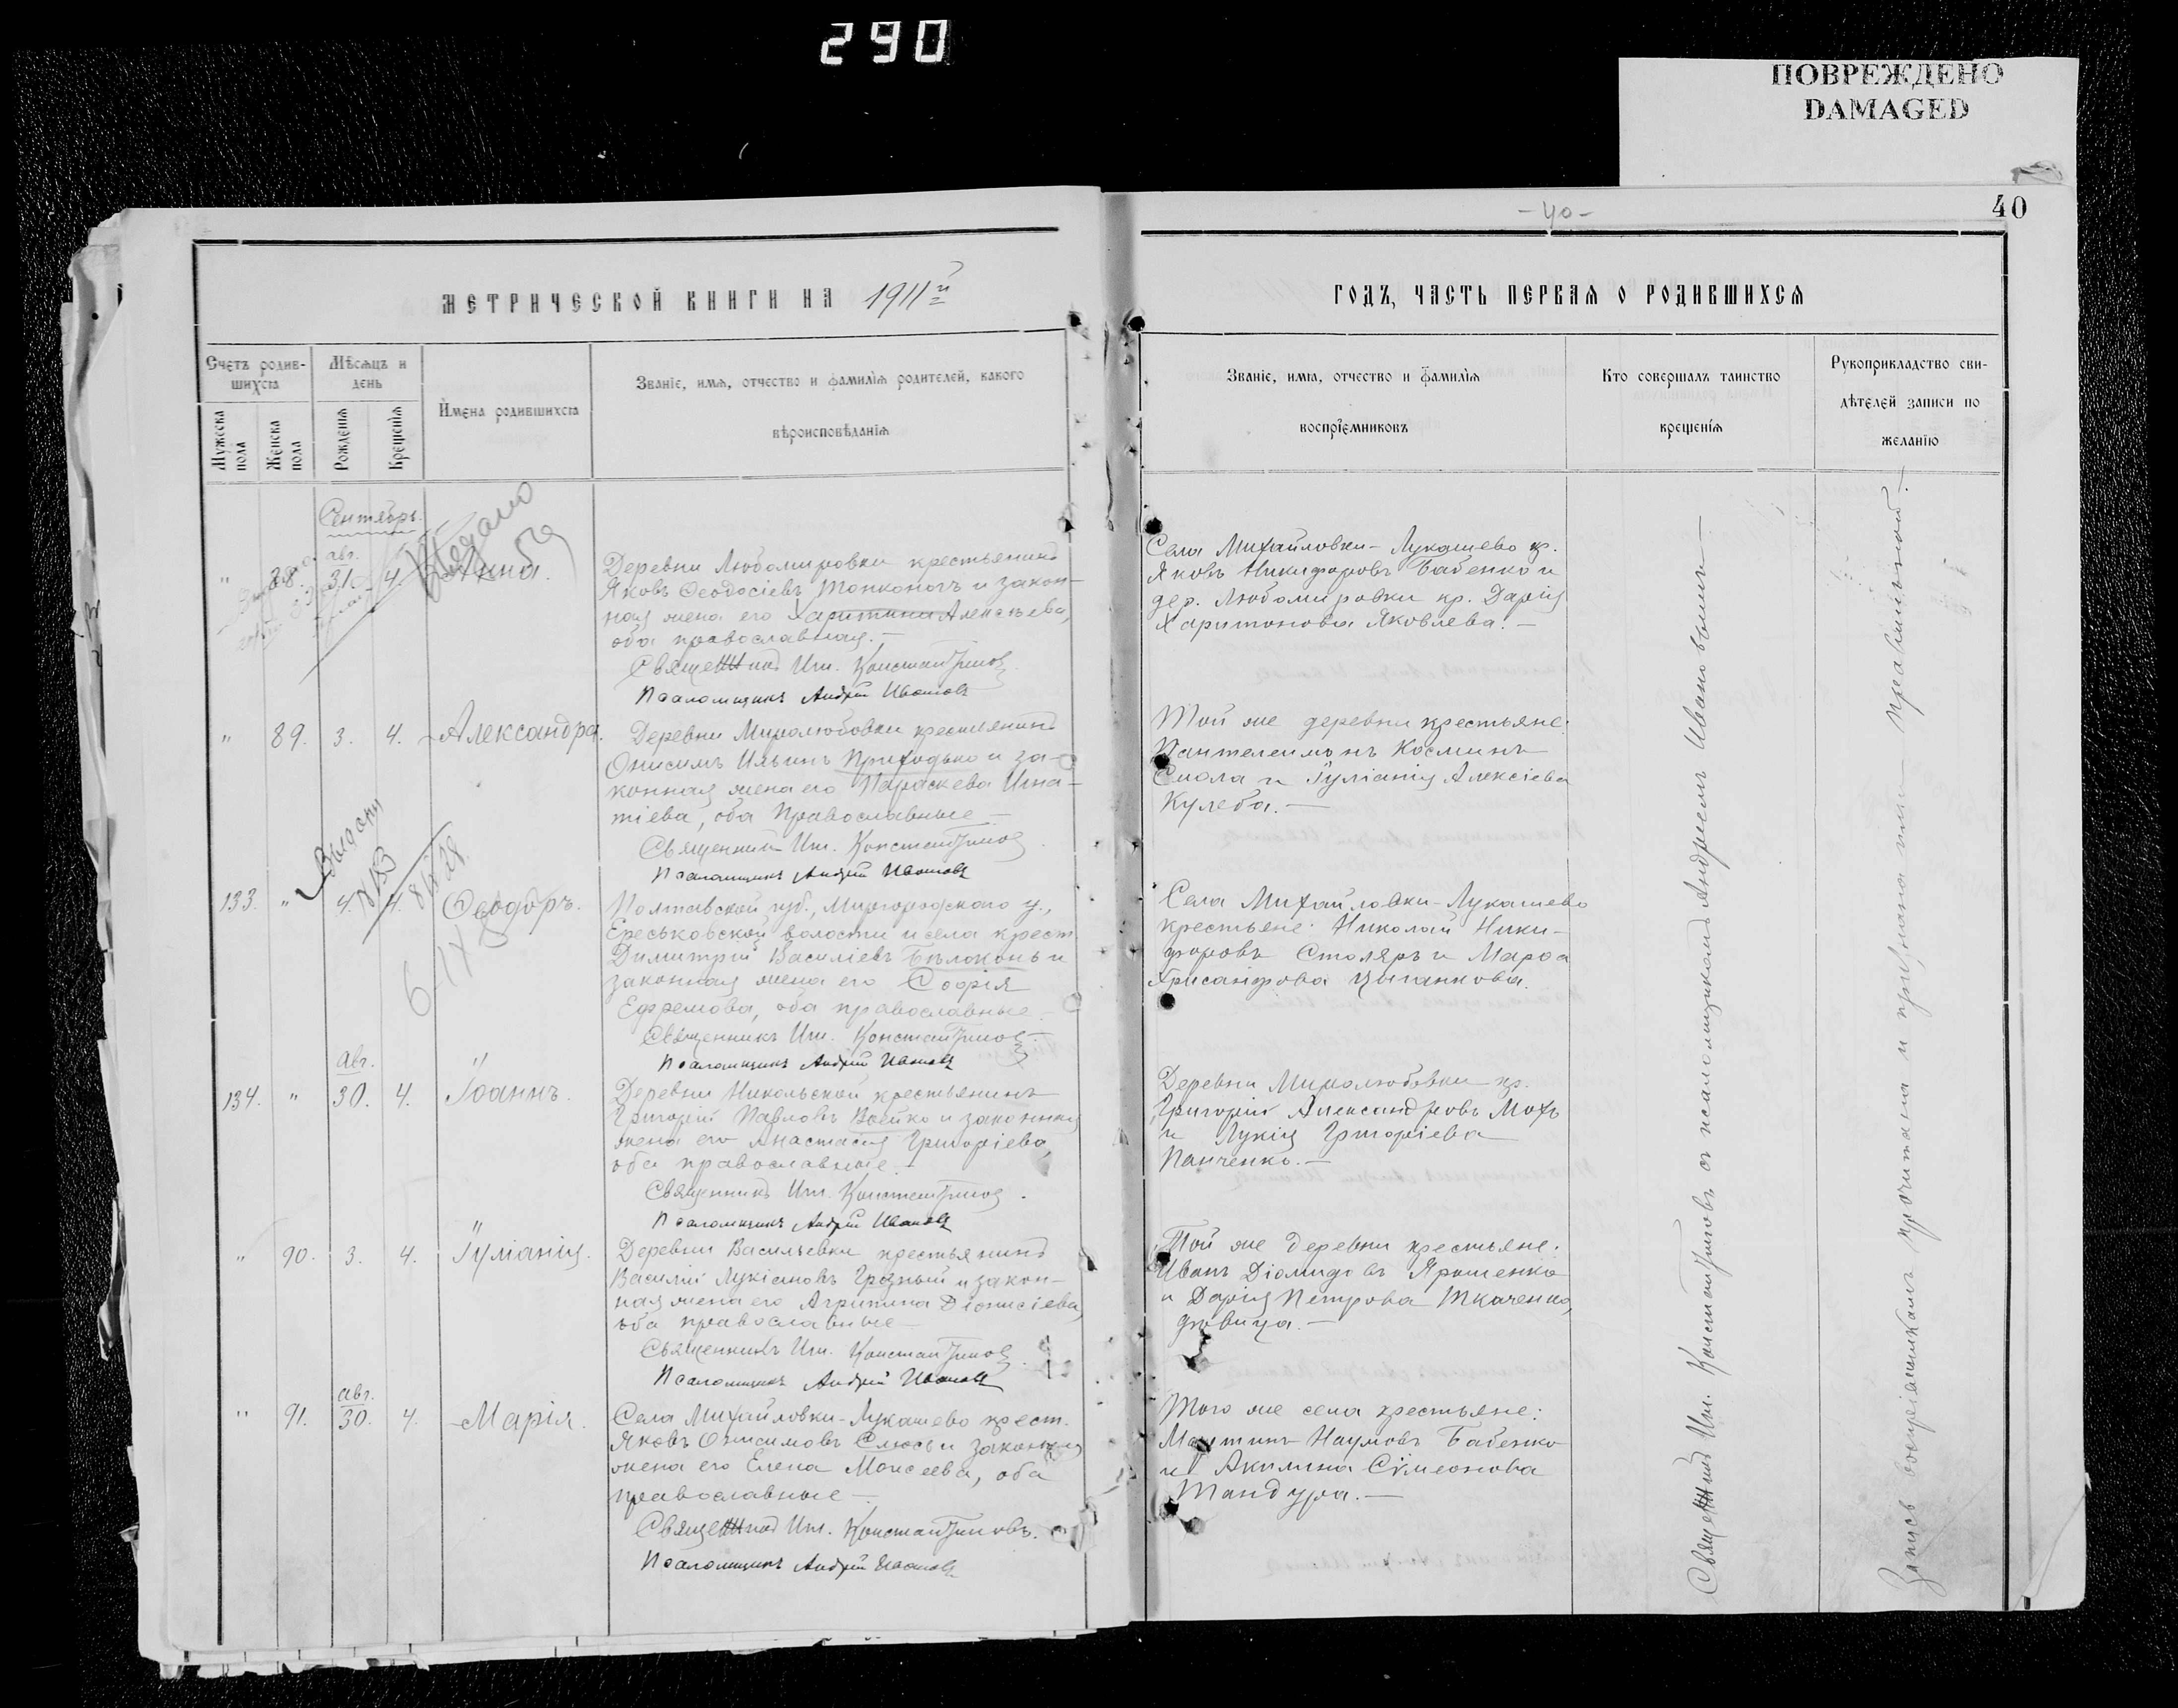 290
ПОВРЕЖДЕНО
DAMAGED
-40-
40
МЕТРИЧЕСКОЙ КНИГИ НА 1911й
Счетъ родив-
шихся
Мѣсяцъ и
день
Имена родившихся
Званіе, имя, отчество и фамилія родителей, какого
вѣроисповѣданія
Мужеска пола
Женска пола
Рожденія
Крещенія
Сентябрь.
" 88. авг. 31. 4. Анна.
Деревни Любомировки крестьянинъ
Яковъ Ѳеодосіевъ Тонконогъ и закон-
ная жена его Харитина Алексѣева,
оба православная.—
Священникъ Им. Константиновъ
Псаломщикъ Андрей Ивановъ
" 89. 3. 4. Александра.
Деревни Миролюбовки крестьянинъ
Онисимъ Ильинъ Приходько и за-
конная жена его Параскева Игна-
тіева, оба православные—
Священникъ Им. Константиновъ
Псаломщикъ Андрей Ивановъ
Выдана
133. " 4. 4. Ѳеодоръ.
Полтавской губ., Миргородского у.,
Ереськовской волости и села крест.
Димитрій Василіевъ Бѣлоконь и
законная жена его Софія
Ефремова, оба православные.—
Священникъ Им. Константиновъ
Псаломщикъ Андрей Ивановъ
134. " авг. 30. 4. Іоаннъ.
Деревни Никольской крестьянинъ
Григорій Павловъ Войко и законная
жена его Анастасія Григоріева,
оба православные.—
Священникъ Им. Константиновъ.
Псаломщикъ Андрей Ивановъ
" 90. 3. 4. Іуліанія.
Деревни Васильевки крестьянинъ
Василій Лукіановъ Грозный и закон-
ная жена его Агрипина Діонисіева,
оба православные—
Священникъ Им. Константиновъ
Псаломщикъ Андрей Ивановъ
" 91. авг. 30. 4. Марія.
Села Михайловки-Лукашево крест.
Яковъ Онисимовъ Слюсь и законная
жена его Елена Моисеева, оба
православные—
Священникъ Им. Константиновъ.
Псаломщикъ Андрей Ивановъ
ГОДЪ, ЧАСТЬ ПЕРВАЯ О РОДИВШИХСЯ
Званіе, имя, отчество и фамилія
воспріемниковъ
Кто совершалъ таинство
крещенія
Рукоприкладство сви-
дѣтелей записи по
желанію
Села Михайловки-Лукашево кр.
Яковъ Никифоровъ Бабенко и
дер. Любомировки кр. Дарія
Харитонова Яковлева.—
Той же деревни крестьяне:
Пантелеимонъ Косминъ
Смола и Іуліанія Алексіева
Кулеба.—
Села Михайловки-Лукашево
крестьяне: Николай Ники-
форовъ Столяръ и Марѳа
Хрисанфова Цыганкова.
Деревни Миролюбовки кр.
Григорій Александровъ Мохъ
и Лукія Григоріева
Панченко.—
Той же деревни крестьяне:
Иванъ Діомидовъ Ярошенко
и Дарія Петрова Ткаченко,
дѣвица.—
Того же села крестьяне:
Мартинъ Наумовъ Бабенко
и Акилина Сѵмеонова
Тандура.—
Священникъ Им. Константиновъ съ псаломщикомъ Андреемъ Ивановымъ—
Запись воспріемникамъ прочитана и признана правильной.—